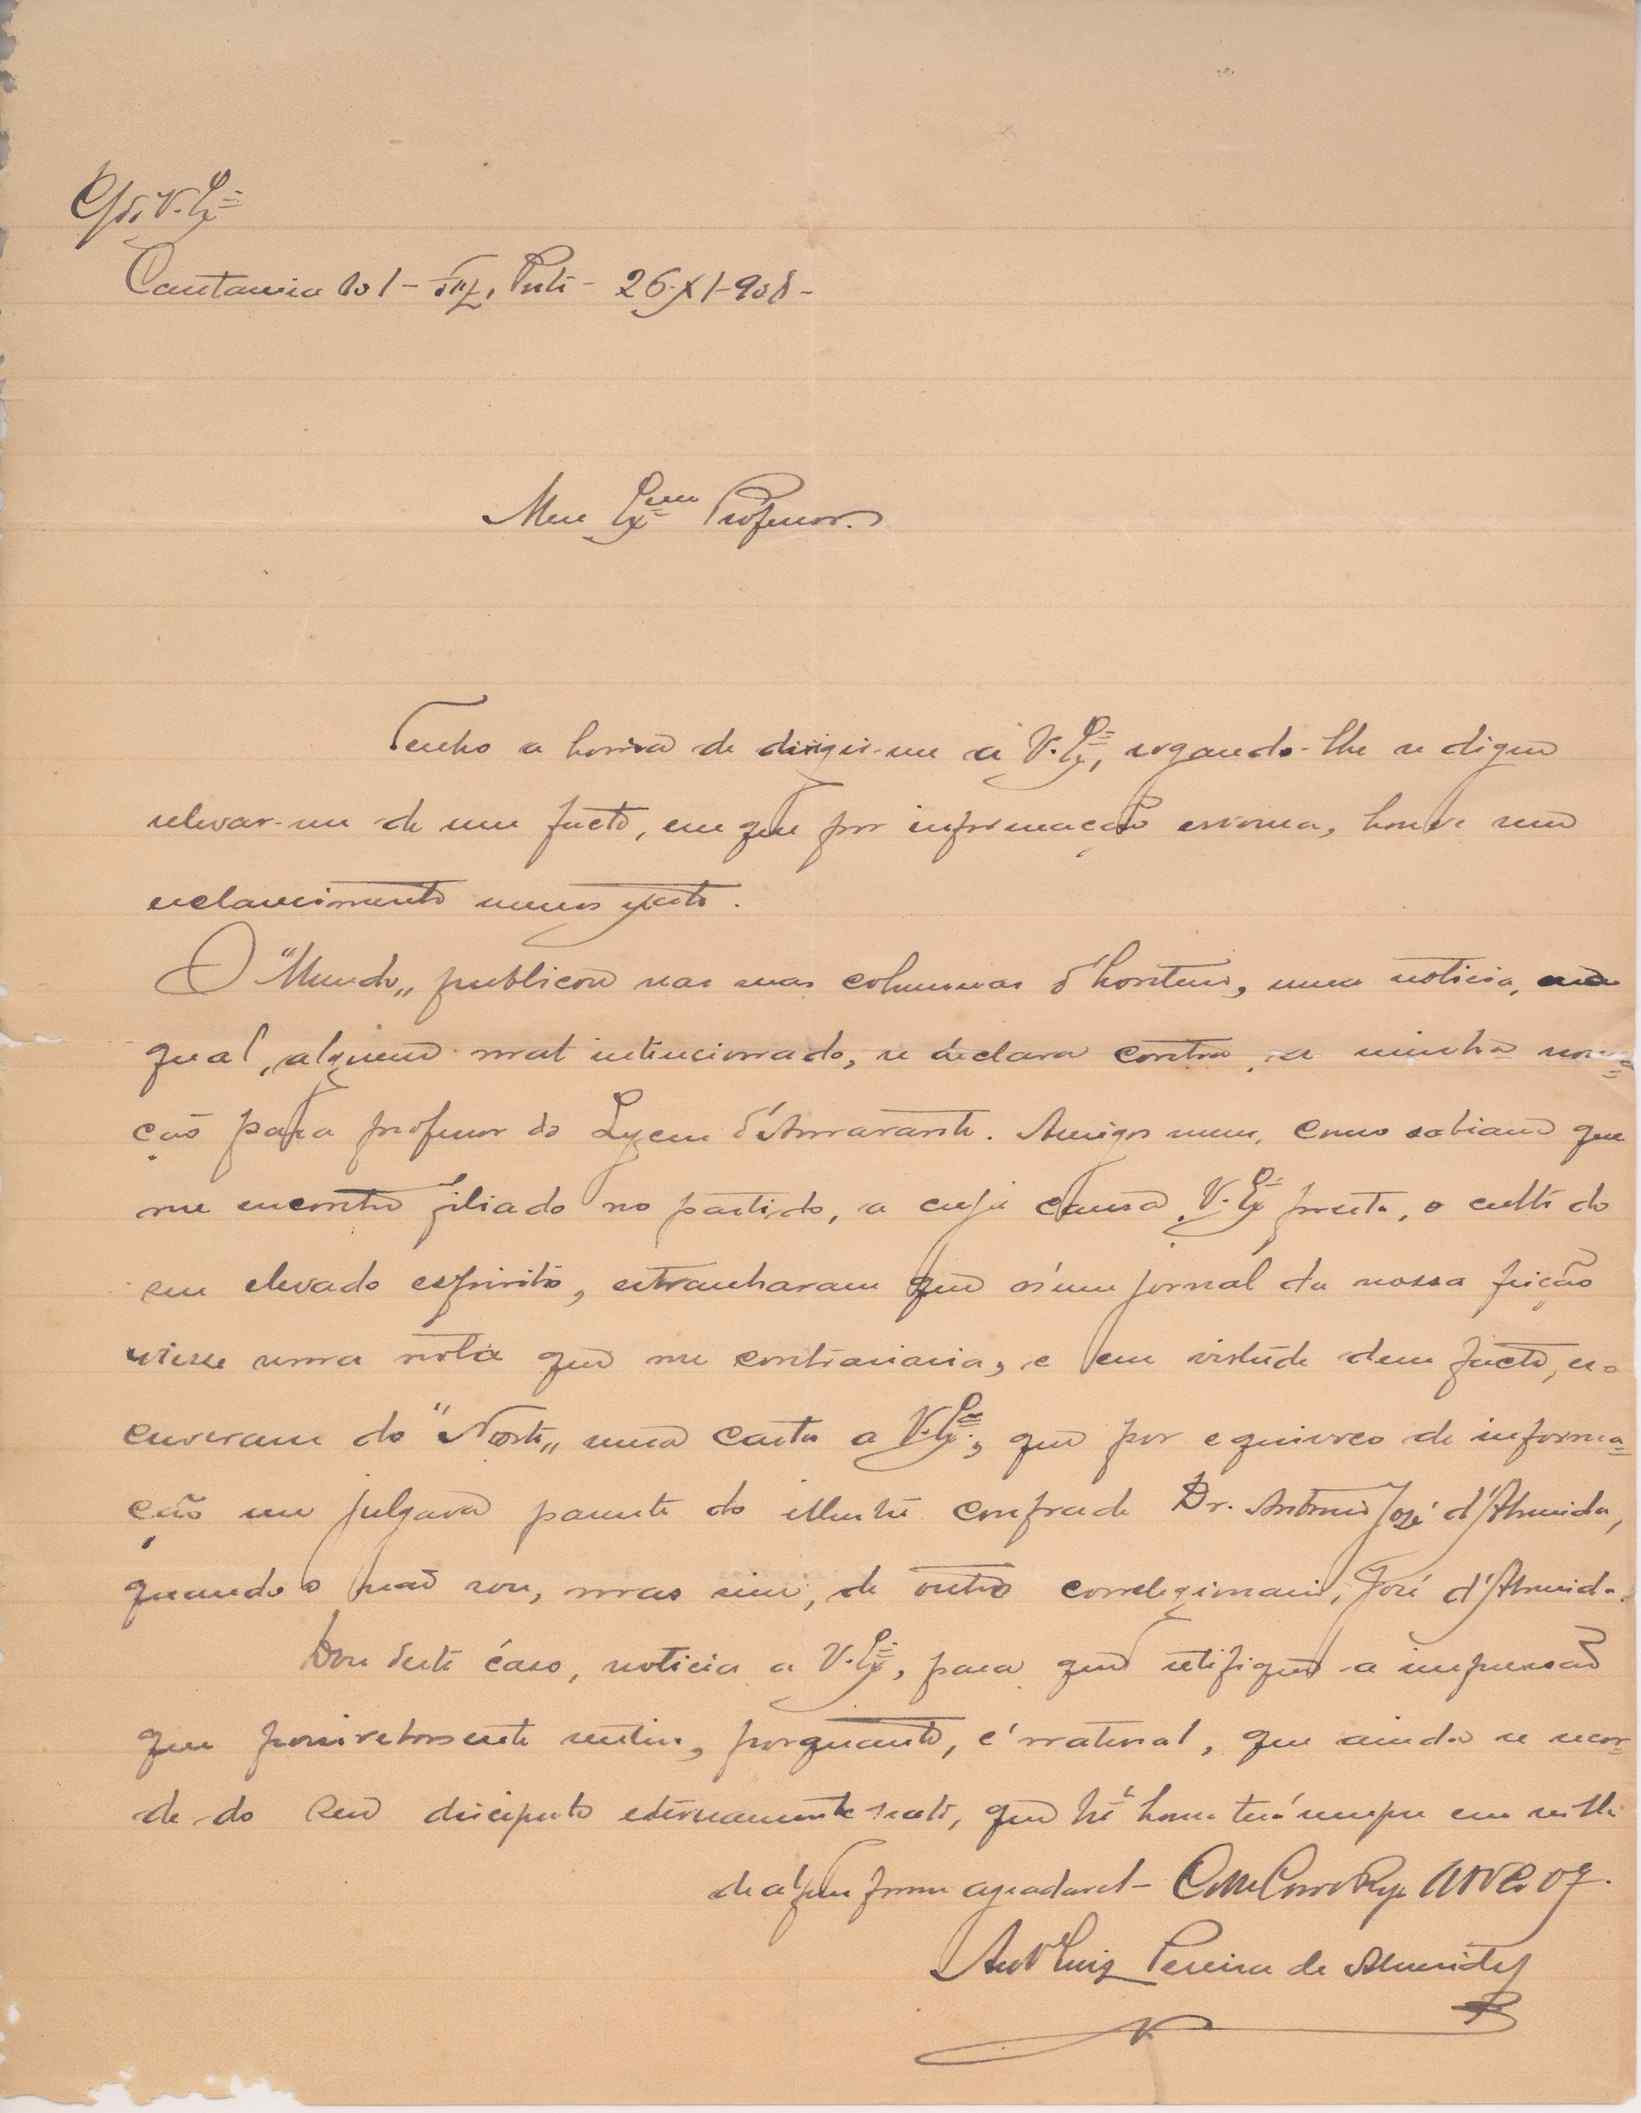 V. Exª
26-XI-908-
Meu Exmo Professor.
Tenho a honra de dirigir-me a V. Exª, rogando-lhe se digne
relevar-me de um facto, em que por informação erronea, houve um
esclarecimento menos exacto.
O "Mundo" publicou nas suas columnas d'hontem, uma noticia, na
qual, alguem mal intencionado, se declara contra a minha nomea=
ção para professor do Lyceu d'Amarante. Amigos meus, como sabiam que
me encontro filiado no partido, a cuja causa V. Exª presta, o culto do
seu elevado espirito, extranharam que n'um jornal da nossa feição
viesse uma nota que me contrariaria, e em virtude d'esse facto, es=
creveram do "Norte" uma carta a V. Exª, que por equivoco de informa=
ção me julgava parente do illustre confrade Dr. Antonio José d'Almeida,
quando o não sou, mas sim, de outro correligionario, José d'Almeida.
Dou deste caso, noticia a V. Exª, para que retifique a impressão
que possivelmente sentiu, porquanto, é natural, que ainda se recor=
de do seu discipulo eternamente grato, que terá sempre em ser-lhe
de alguma forma agradavel-
Antº Luiz Pereira de Almeida